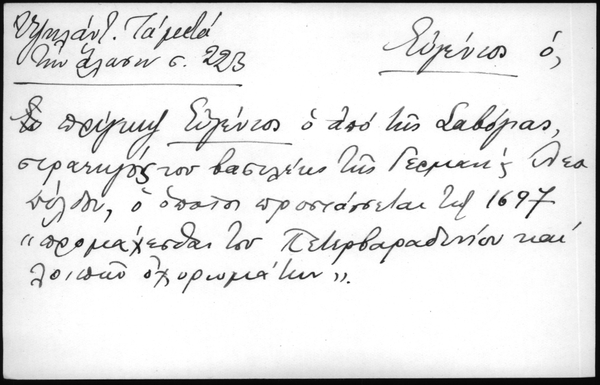 Ὑψηλάντ. Τὰ μετὰ
τὴν ἅλωσιν σ. 223
Εὐγένιος ὁ,
πρίγκηψ Εὐγένιος ὁ ἀπὸ τῆς Σαβόϊας,
στρατηγὸς τοῦ βασιλέως τῆς Γερμανί Λεο
πόλδου, ὁ ὁποῖος προστάσσεται τῷ 1697
«προμάχεσθαι τοῦ Πετερβαραδινίου καὶ
λοιπῶν ὀχυρωμάτων».